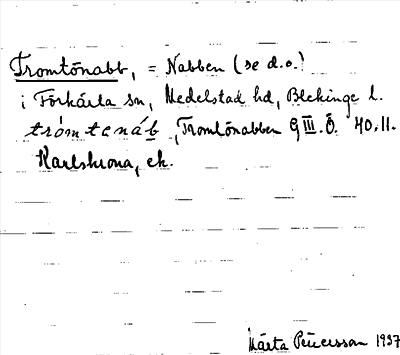 Tromtönabb, = Nabben (se d.o.)
i Förkärla sn, Medelstad hd, Blekinge l.
trómtenáb, Tromtönabben G III. Ö. 40.11.
Karlskrona, ek.
Märta Petersson 1937